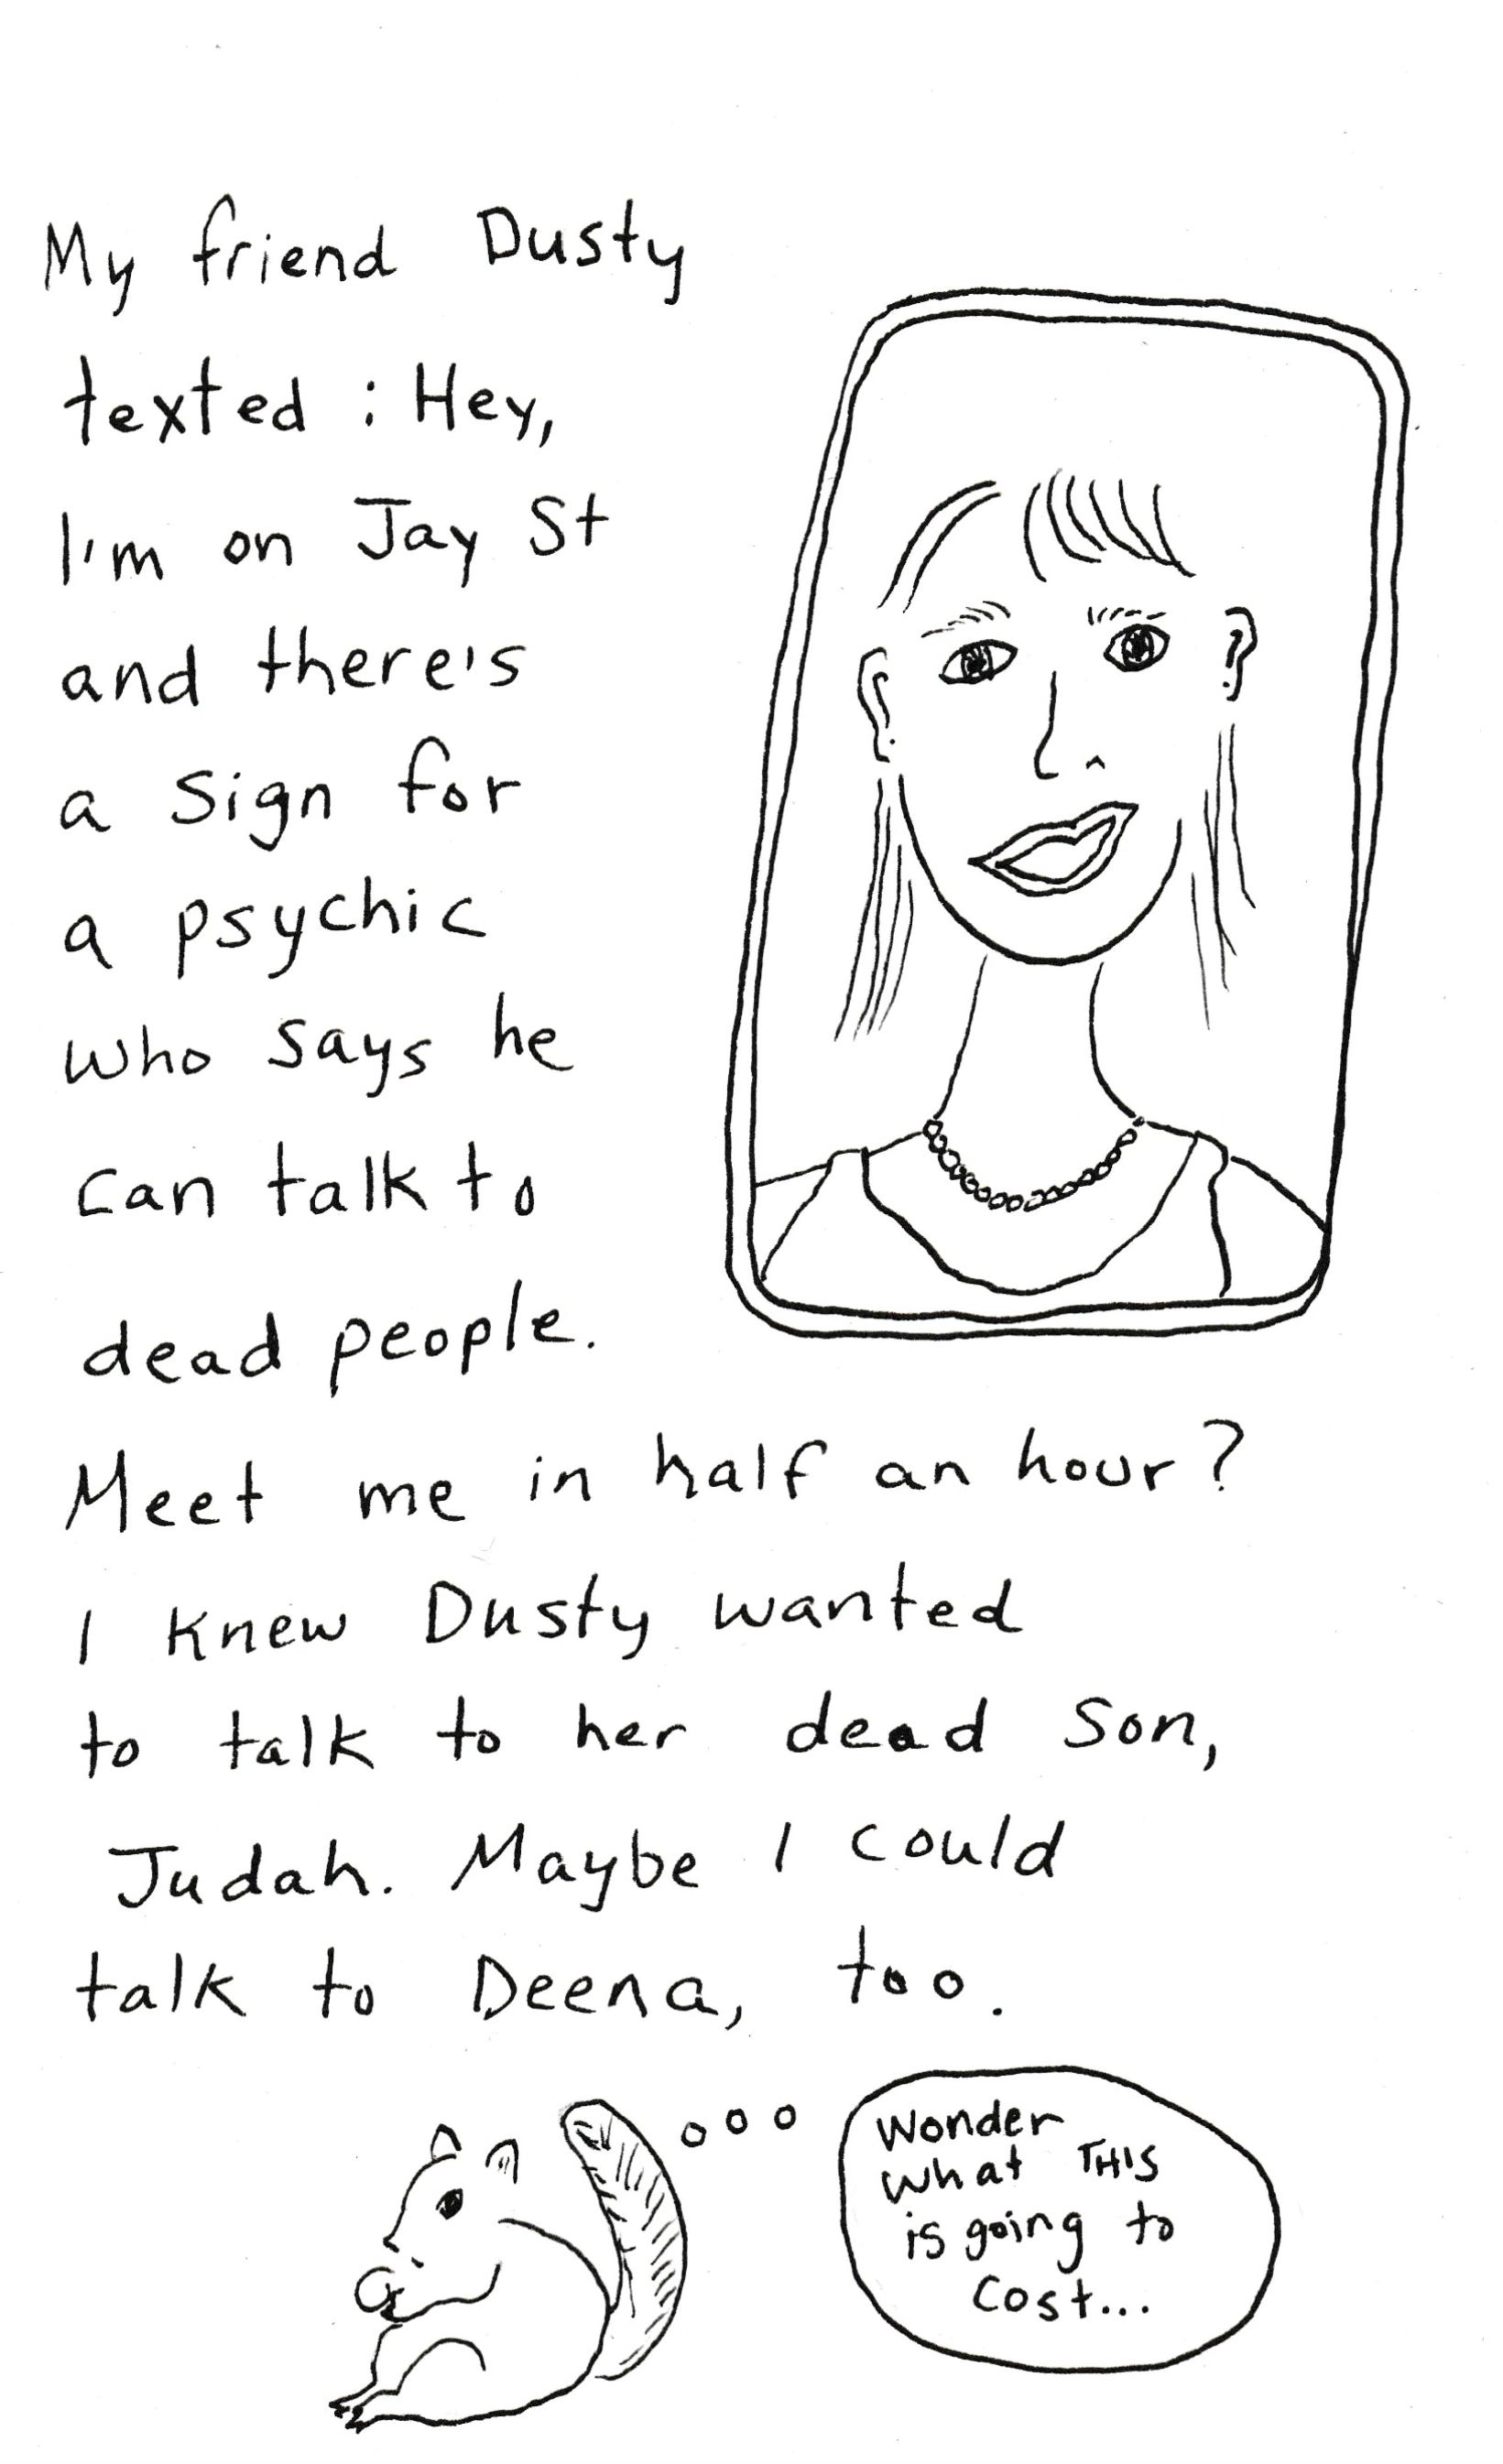 My friend Dusty
texted : Hey,
I'm on Jay St
and there's
a sign for
a psychic
who says he
can talk to
dead people.
Meet me in half an hour?
I knew Dusty wanted
to talk to her dead son,
Judah. Maybe I could
talk to Deena, too.
Wonder
what THIS
is going to
cost...